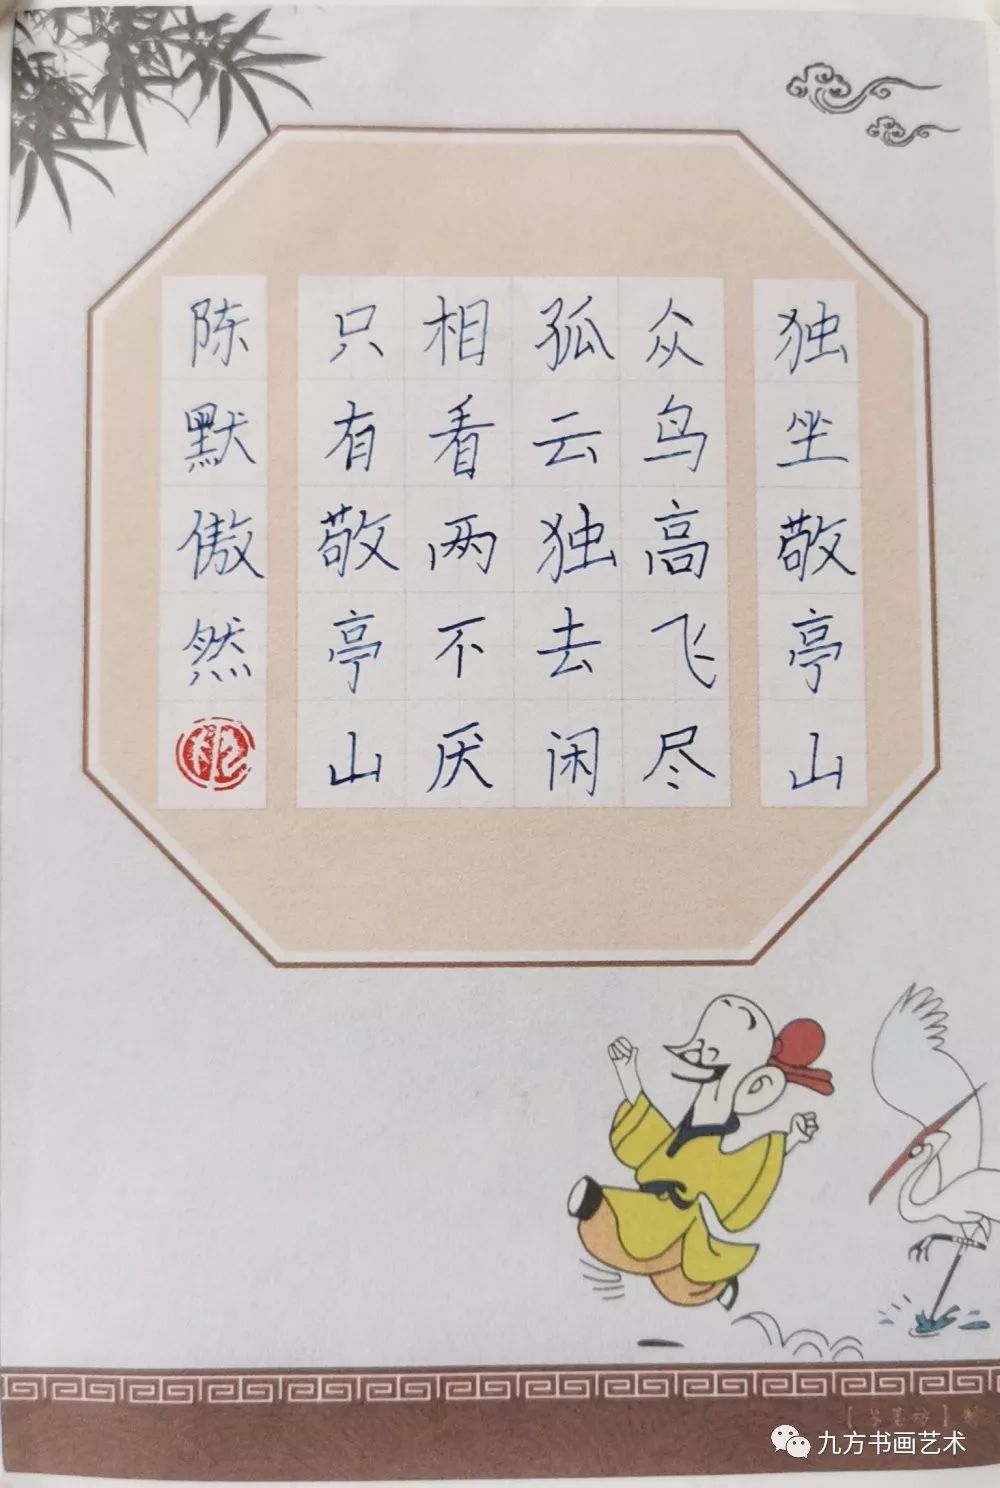 独坐敬亭山
众鸟高飞尽
孤云独去闲
相看两不厌
只有敬亭山
陈默傲然
九方书画艺术